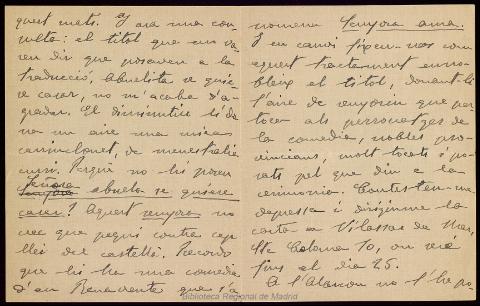 quest mati. Ay ara una con-
sulta: el títol que em va-
ren dir que posaven a la
traducció, abuelita se quie-
re casar, no m'acaba d'a-
gradar. El diminutiu li dó-
na un aire una mica
casinclonet, de menestralia
cursi. Perquè no hi posen
Señora abuela se quiere
casar? Aquest senyora no
crec que pequi contra cap
llei del castellà. Recordo
que hi ha una comedia
d'en Benavente que s'a-
nomena Senyora ama.
I en canvi fixeu-vos com
aquest tractament enno-
bleix el títol, donant-li
l'aire de senyoriu que per-
toca als personatges de
la comedia, nobles pro-
vincians, molt tocats i po-
sats pel que diu a la
cerimonia. Contesteu-me
depressa i dirigiu-me la
carta a Vilassar de Mar,
Sta Coloma 10, on seré
fins el dia 25.
A l'Alarcon no l'he po-
Biblioteca Regional de Madrid